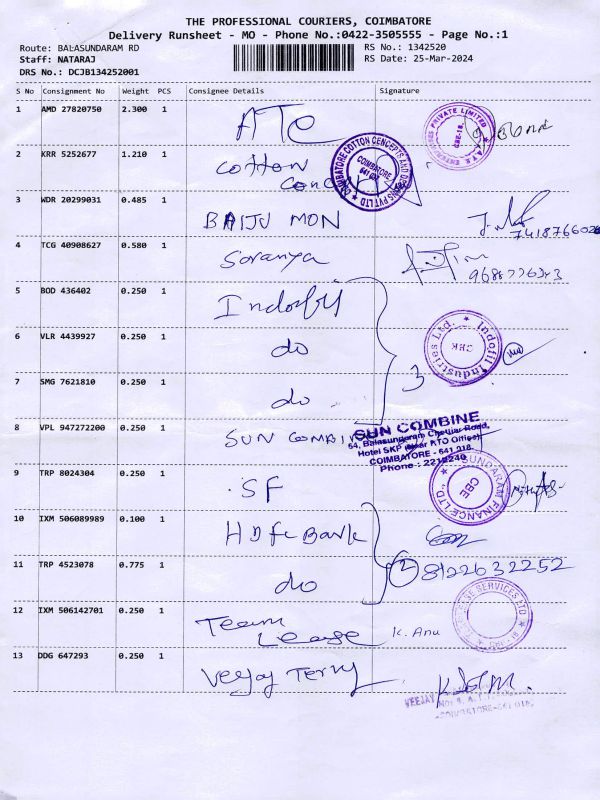 THE PROFESSIONAL COURIERS, COIMBATORE
Delivery Runsheet - MO - Phone No.:0422-3505555 - Page No.:1
Route: BALASUNDARAM RD RS No.: 1342520
Staff: NATARAJ RS Date: 25-Mar-2024
DRS No.: DCJB134252001
S No Consignment No Weight PCS Consignee Details Signature
1 AMD 27820750 2.300 1 ATC
2 KRR 5252677 1.210 1 Cotton
COIMBATORE COTTON CONCEPTS AND PVT LTD
COIMBATORE
641 018
3 WDR 20299031 0.485 1 BAIJU MON
4 TCG 40908627 0.580 1 Soranya
5 BOD 436402 0.250 1
6 VLR 4439927 0.250 1 do
Indofil Industries Ltd.
CBE
7 SMG 7621810 0.250 1 do 3
8 VPL 947272200 0.250 1 SUN COMBINE
SUN COMBINE
54, Balasundaram Chettiar Road,
Hotel SKP (Near RTO Office)
COIMBATORE - 641 018.
Phone : 2212249
9 TRP 8024304 0.250 1 SF
SUNDARAM FINANCE LTD.,
CBE
10 IXM 506089989 0.100 1 Hdfc Bank
11 TRP 4523078 0.775 1 do 2 8122632252
12 IXM 506142701 0.250 1 Team
Lease K. Anu
SERVICES LTD
13 DDG 647293 0.250 1 Veejay Terry
VEEJAY
COIMBATORE-641 018.